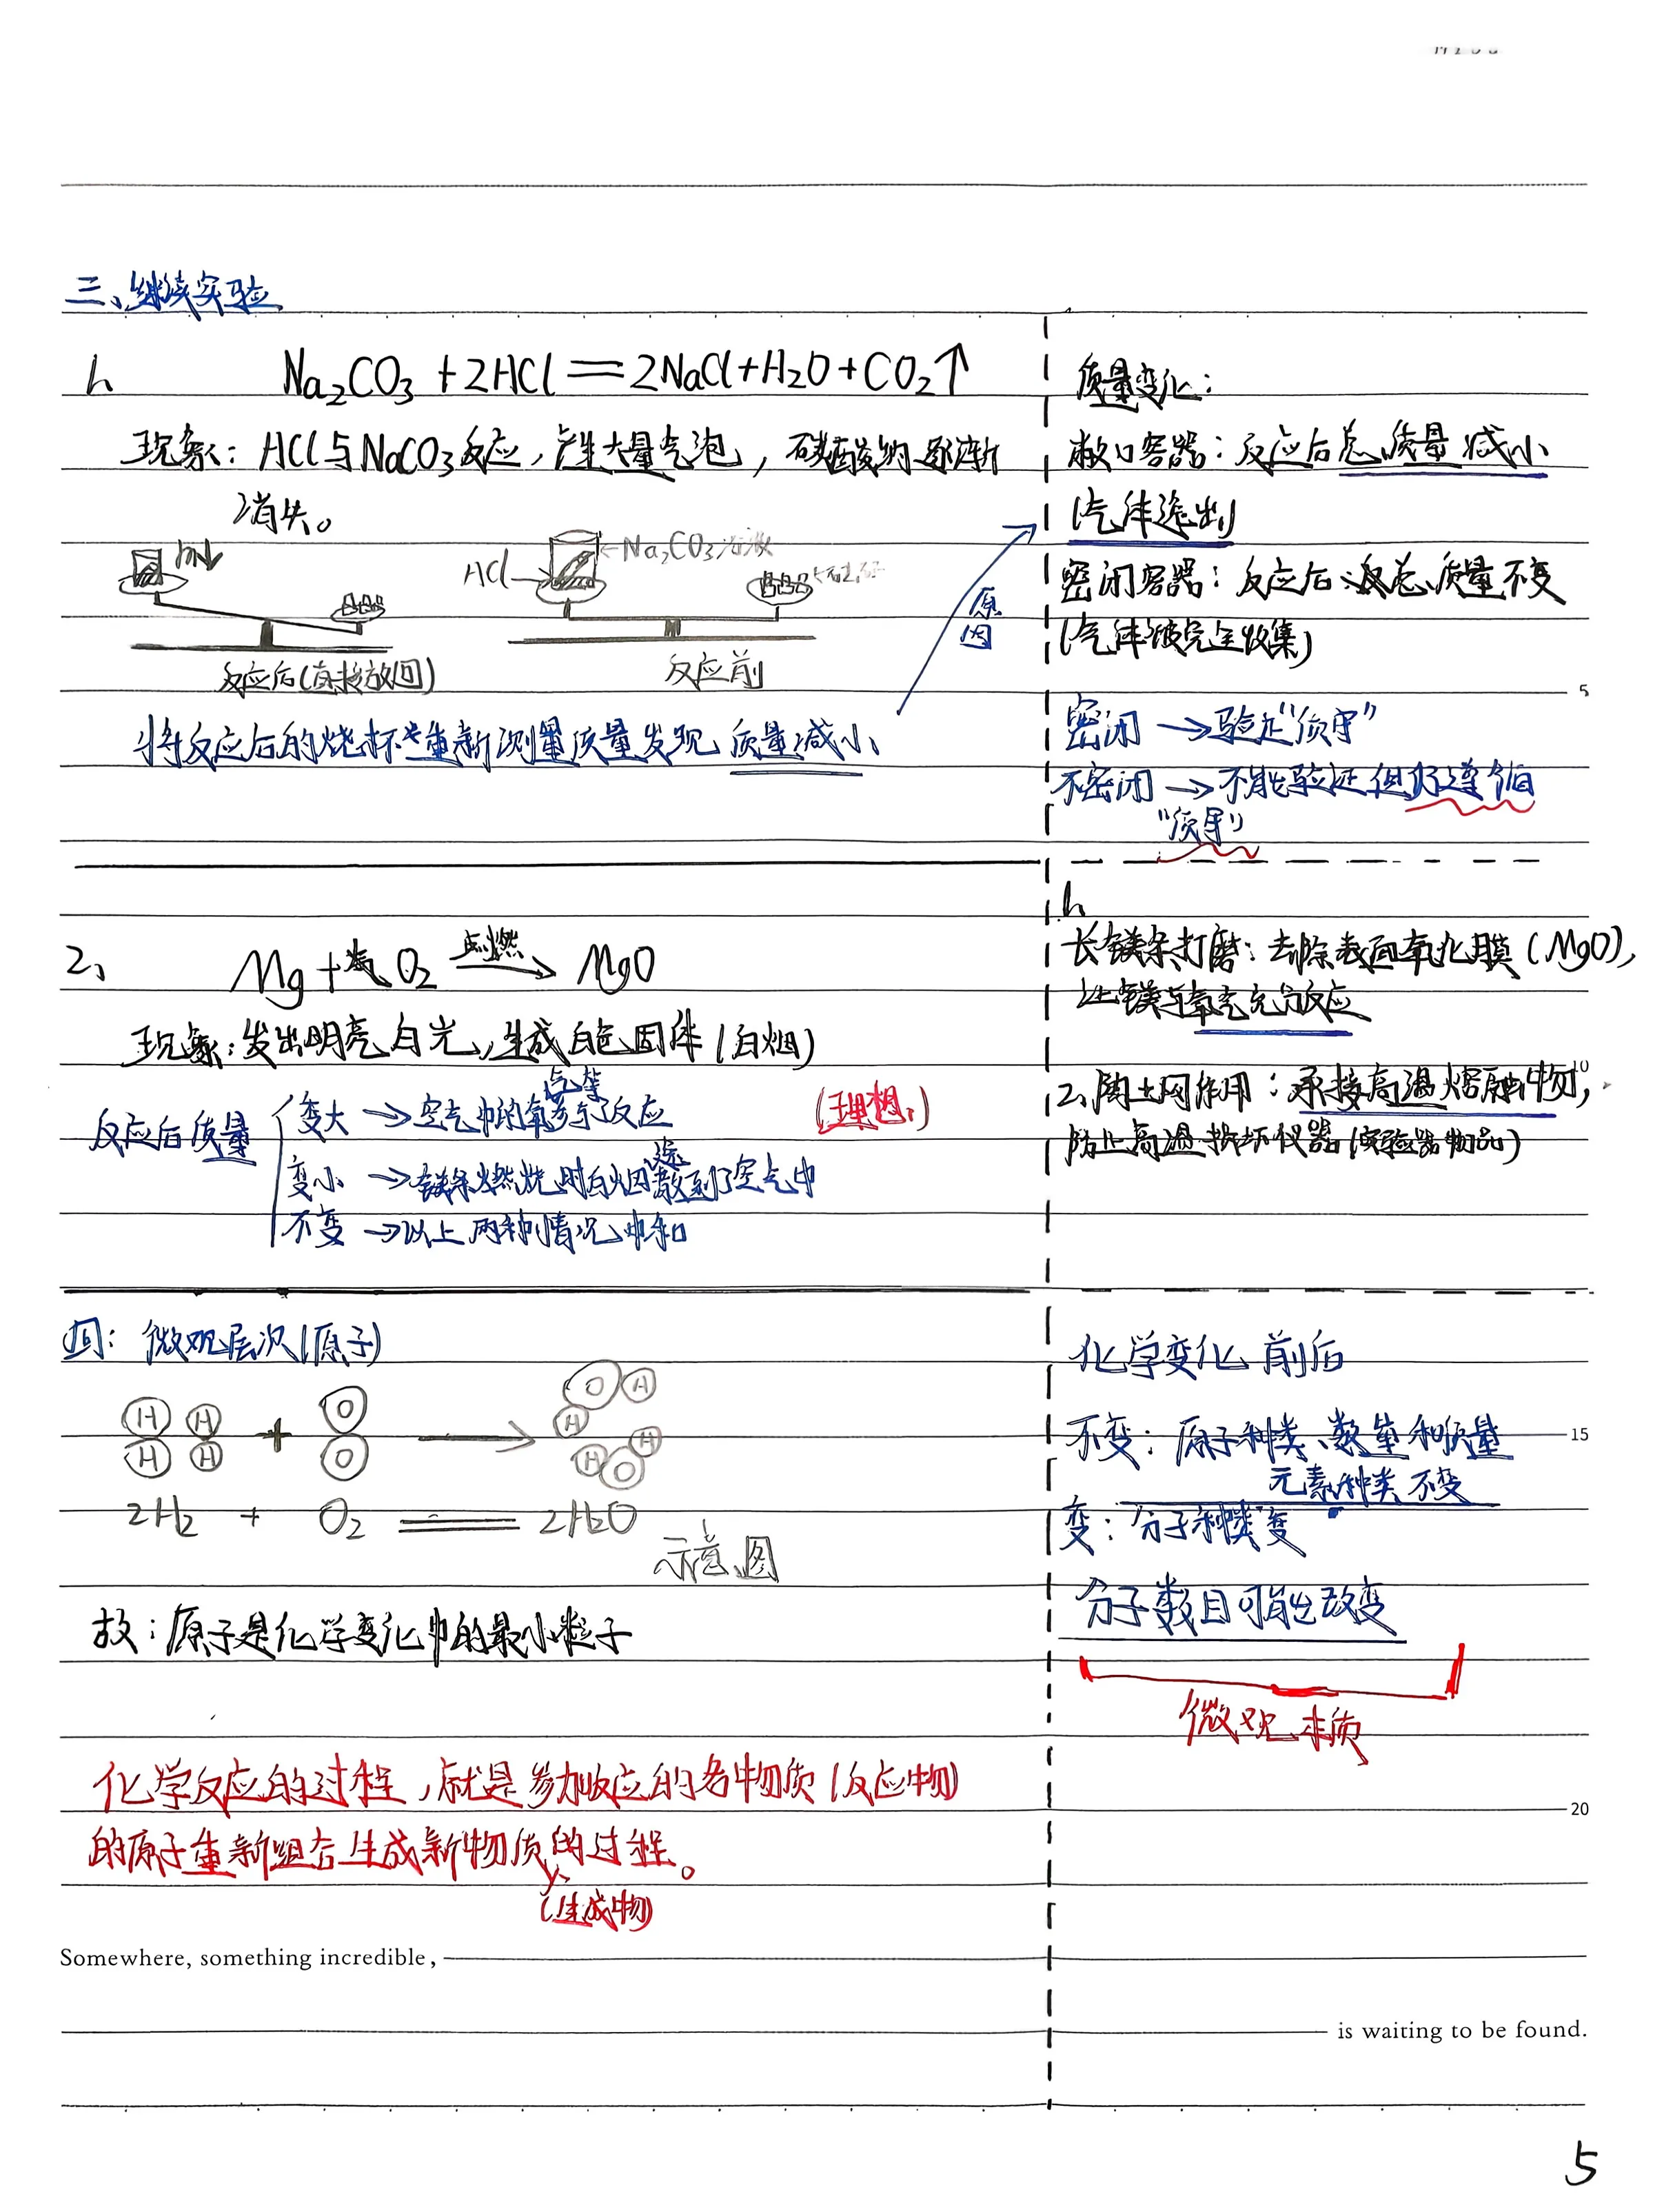 三、继续实验
1、 Na₂CO₃ + 2HCl == 2NaCl + H₂O + CO₂↑
现象：HCl与NaCO₃反应，产生大量气泡，碳酸钠逐渐
消失。
HCl→ ←Na₂CO₃溶液
反应后（直接放回） 反应前
将反应后的烧杯重新测量质量发现 质量减小、
原因
质量变化：
敞口容器：反应后总质量减小
（气体逸出）
密闭容器：反应后 总质量不变
（气体被完全收集）
密闭 → 验证“质守”
不密闭 → 不能验证但仍遵循
“质守”
2、 Mg + O₂ 点燃→ MgO
现象：发出明亮白光，生成白色固体（白烟）
反应后质量
变大 → 空气中的氧气等参与了反应
（理想）
变小 → 镁条燃烧时白烟逸散到了空气中
不变 → 以上两种情况中和
1、
长镁条打磨：去除表面氧化膜（MgO），
让镁与氧气充分反应
2、陶土网作用：承接高温熔融物，
防止高温损坏仪器（实验器物品）
四：微观层次（原子）
H H + O → O H
H H O H H
H O
2H₂ + O₂ == 2H₂O
示意图
故：原子是化学变化中的最小粒子
化学反应的过程，就是参加反应的各物质（反应物）
的原子重新组合生成新物质的过程。
（生成物）
化学变化前后
不变：原子种类、数量和质量
元素种类不变
变：分子种类变
分子数目可能改变
微观本质
5
10
15
20
Somewhere, something incredible,
is waiting to be found.
5